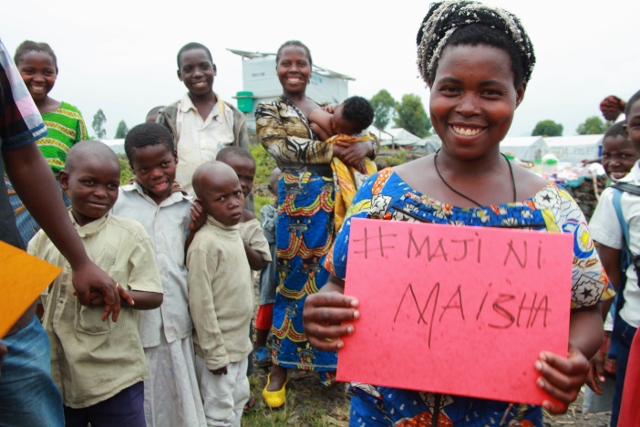 #MAJI NI
MAISHA